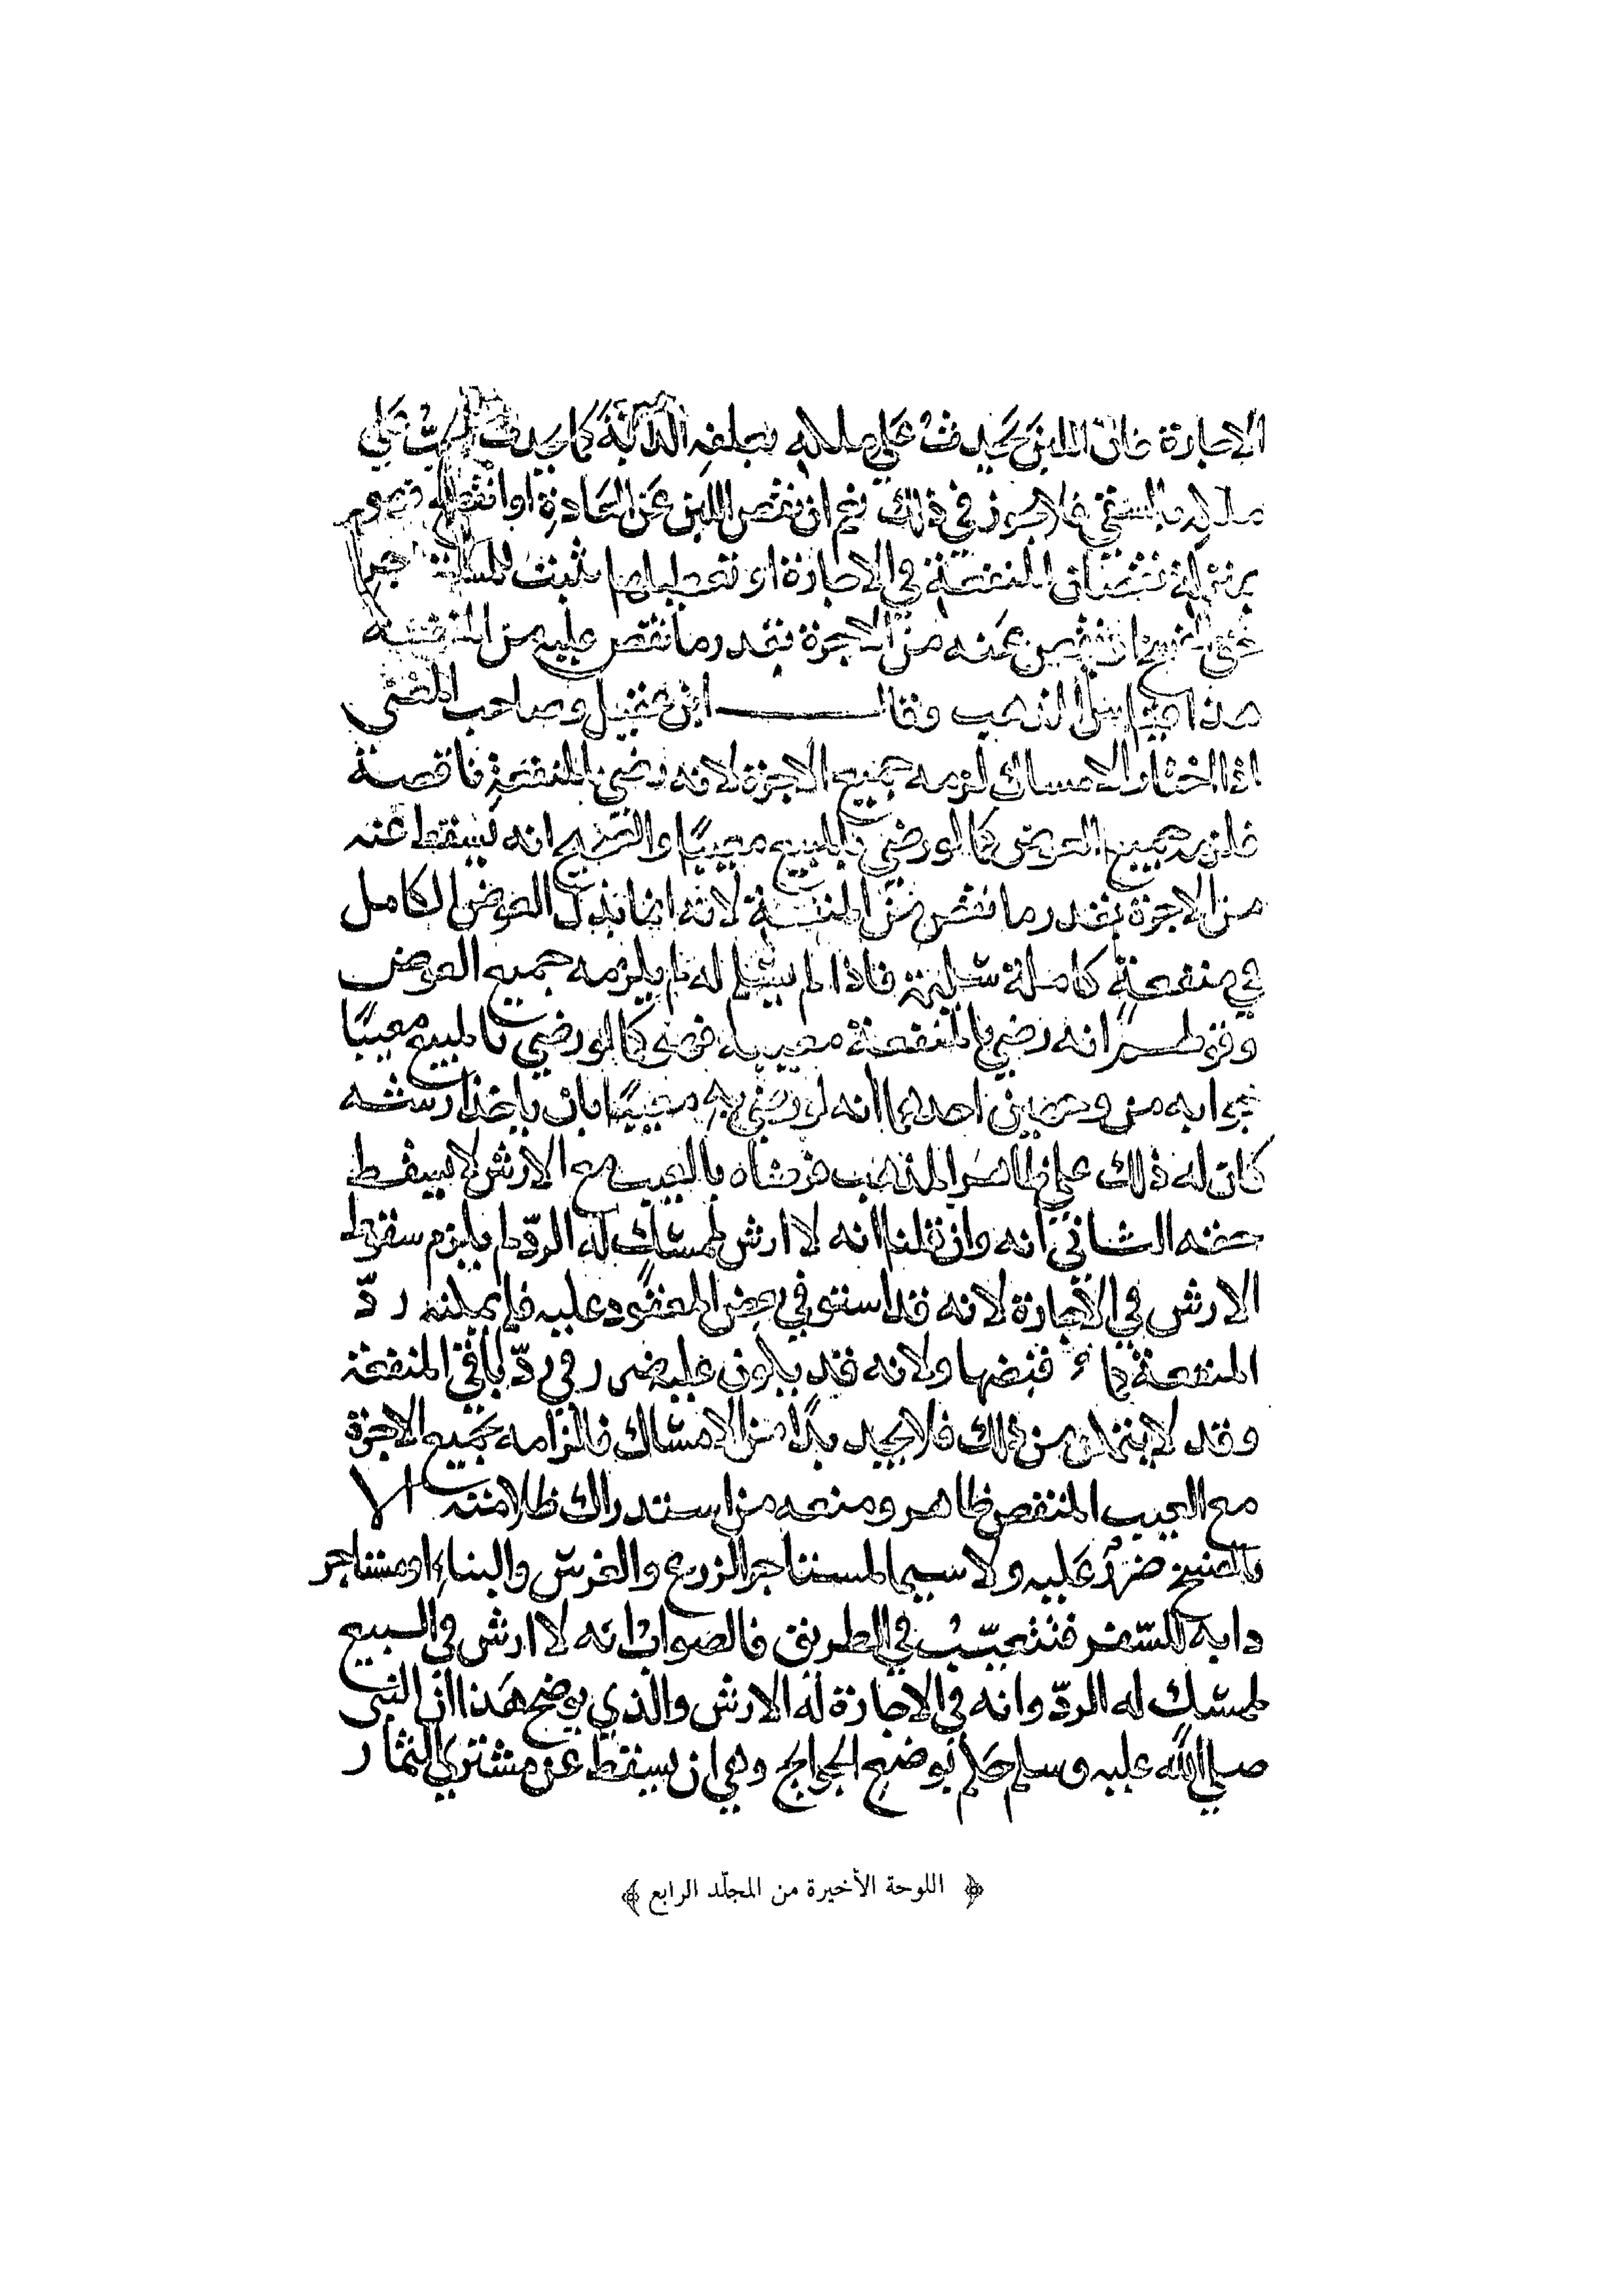 الاجارة فان اللبن يحدث على ملكه بعلفه الدابة كما يحدث الحب على
ملكه بالسقي فلا يجوز في ذلك نعم ان نقص اللبن عن العادة او انقطع فهو
بمنزلة نقصان المنفعة في الاجارة او تعطيلها يثبت للمستاجر
حق الفسخ او ينقص عنه من الاجرة بقدر ما نقص عليه من المنفعة
هذا قياس المذهب وقال ابن عقيل وصاحب المغني
اذا اختار الامساك لزمه جميع الاجرة لانه رضي بالمنفعة ناقصة
فلزمه جميع العوض كما لو رضي بالمبيع معيبا والصحيح انه يسقط عنه
من الاجرة بقدر ما نقص من المنفعة لانه انما بذل العوض الكامل
في منفعة كاملة سليمة فاذا لم يسلم له لم يلزمه جميع العوض
وقولهم انه رضي بالمنفعة معيبة فهو كما لو رضي بالمبيع معيبًا
جوابه من وجهين احدهما انه لو رضي به معيبًا بان ياخذ ارشه
كان له ذلك على ظاهر المذهب فرضاه بالعيب مع الارش لا يسقط
حقه الثاني انه وان قلنا انه لا ارش لممسك له الرد لم يلزم سقوط
الارش في الاجارة لانه قد استوفى بعض المعقود عليه فلم يمكنه رد
المنفعة كما قبضها ولانه قد يكون عليه ضرر في رد باقي المنفعة
وقد لا يتمكن من ذلك فلا يجد بدًا من الامساك فالزامه بجميع الاجرة
مع العيب المنقص ظاهر ومنعه من استدراك ظلامته الا
بالفسخ ضرر عليه ولا سيما لمستاجر الزرع والغرس والبناء او مستاجر
دابة للسفر فتتعيب في الطريق فالصواب انه لا ارش في المبيع
لممسك له الرد وانه في الاجارة له الارش والذي يوضح هذا ان النبي
صلى الله عليه وسلم حكم بوضع الجوايح وهي ان يسقط عن مشتري الثمار
﴿ اللوحة الأخيرة من المجلّد الرابع ﴾